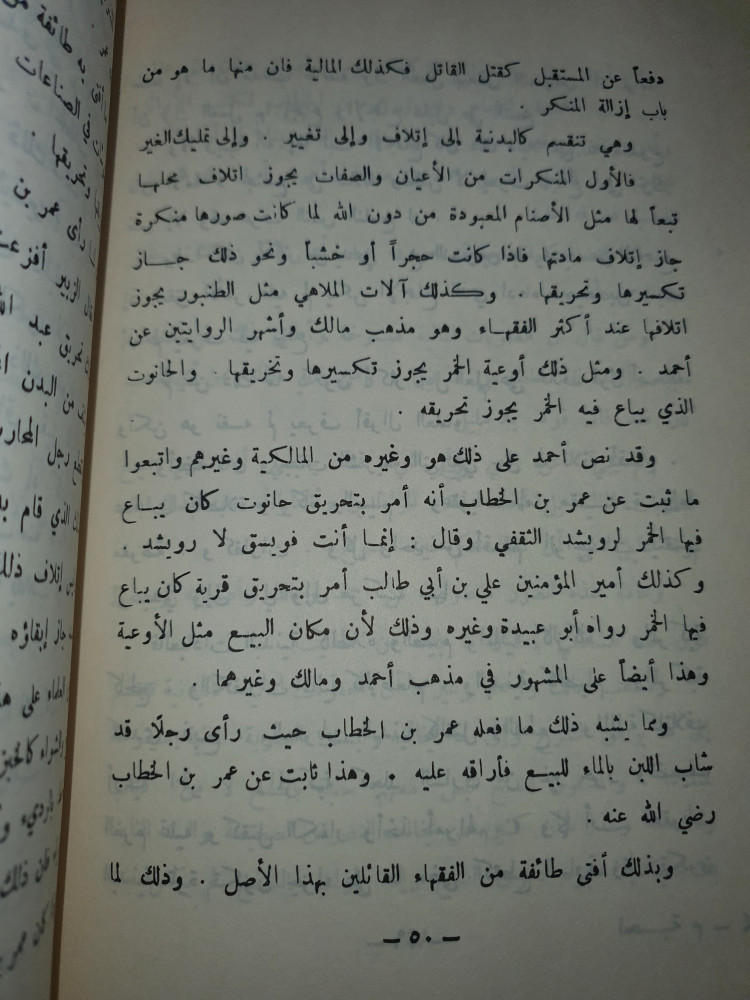 دفعاً عن المستقبل كقتل القاتل فكذلك المالية فان منها ما هو من
باب إزالة المنكر .
وهي تنقسم كالبدنية إلى إتلاف وإلى تغيير . وإلى تمليك الغير
فالأول المنكرات من الأعيان والصفات يجوز اتلاف محلها
تبعاً لها مثل الأصنام المعبودة من دون الله لما كانت صورها منكرة
جاز إتلاف مادتها فاذا كانت حجراً أو خشباً ونحو ذلك جاز
تكسيرها وتحريقها . وكذلك آلات الملاهي مثل الطنبور يجوز
اتلافها عند أكثر الفقهاء وهو مذهب مالك وأشهر الروايتين عن
أحمد . ومثل ذلك أوعية الخمر يجوز تكسيرها وتخريقها . والحانوت
الذي يباع فيه الخمر يجوز تحريقه .
وقد نص أحمد على ذلك هو وغيره من المالكية وغيرهم واتبعوا
ما ثبت عن عمر بن الخطاب أنه أمر بتحريق حانوت كان يباع
فيها الخمر لرويشد الثقفي وقال : إنما أنت فويسق لا رويشد .
وكذلك أمير المؤمنين علي بن أبي طالب أمر بتحريق قرية كان يباع
فيها الخمر رواه أبو عبيدة وغيره وذلك لأن مكان البيع مثل الأوعية
وهذا أيضاً على المشهور في مذهب أحمد ومالك وغيرهما .
ومما يشبه ذلك ما فعله عمر بن الخطاب حيث رأى رجلًا قد
شاب اللبن بالماء للبيع فأراقه عليه . وهذا ثابت عن عمر بن الخطاب
رضي الله عنه .
وبذلك أفتى طائفة من الفقهاء القائلين بهذا الأصل . وذلك لما
— ٥٠ —